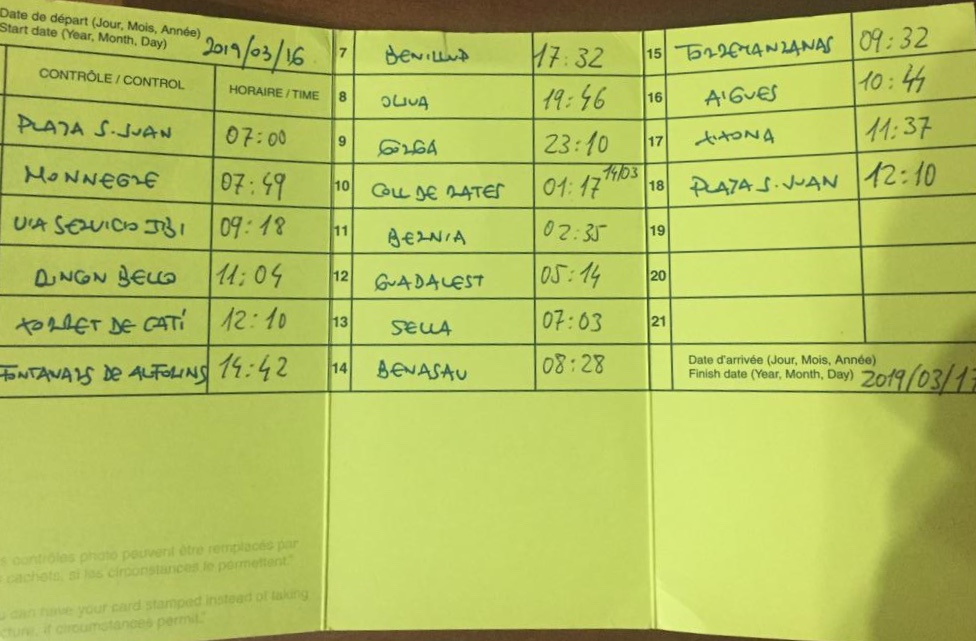 Date de départ (Jour, Mois, Année)
Start date (Year, Month, Day) 2019/03/16
CONTRÔLE / CONTROL HORAIRE / TIME
PLAJA S.JUAN 07:00
MONNEGRE 07:49
VIA SERVICIO IBI 09:18
11:04
XORRET DE CATÍ 12:10
FONTANARS DE ALFORINS 14:42
7 BENILLUP 17:32
8 OLIVA 19:46
9 GORGA 23:10
10 COLL DE RATES 01:17
11 BERNIA 02:35
12 GUADALEST 05:14
13 SELLA 07:03
14 BENASAU 08:28
15 TORREMANZANAS 09:32
16 AIGUES 10:44
17 XIXONA 11:37
18 PLAJA S.JUAN 12:10
19
20
21
Date d'arrivée (Jour, Mois, Année)
Finish date (Year, Month, Day) 2019/03/17
s contrôles photo peuvent être remplacés par
cachets, si les circonstances le permettent."
u can have your card stamped instead of taking
cture, if circumstances permit."